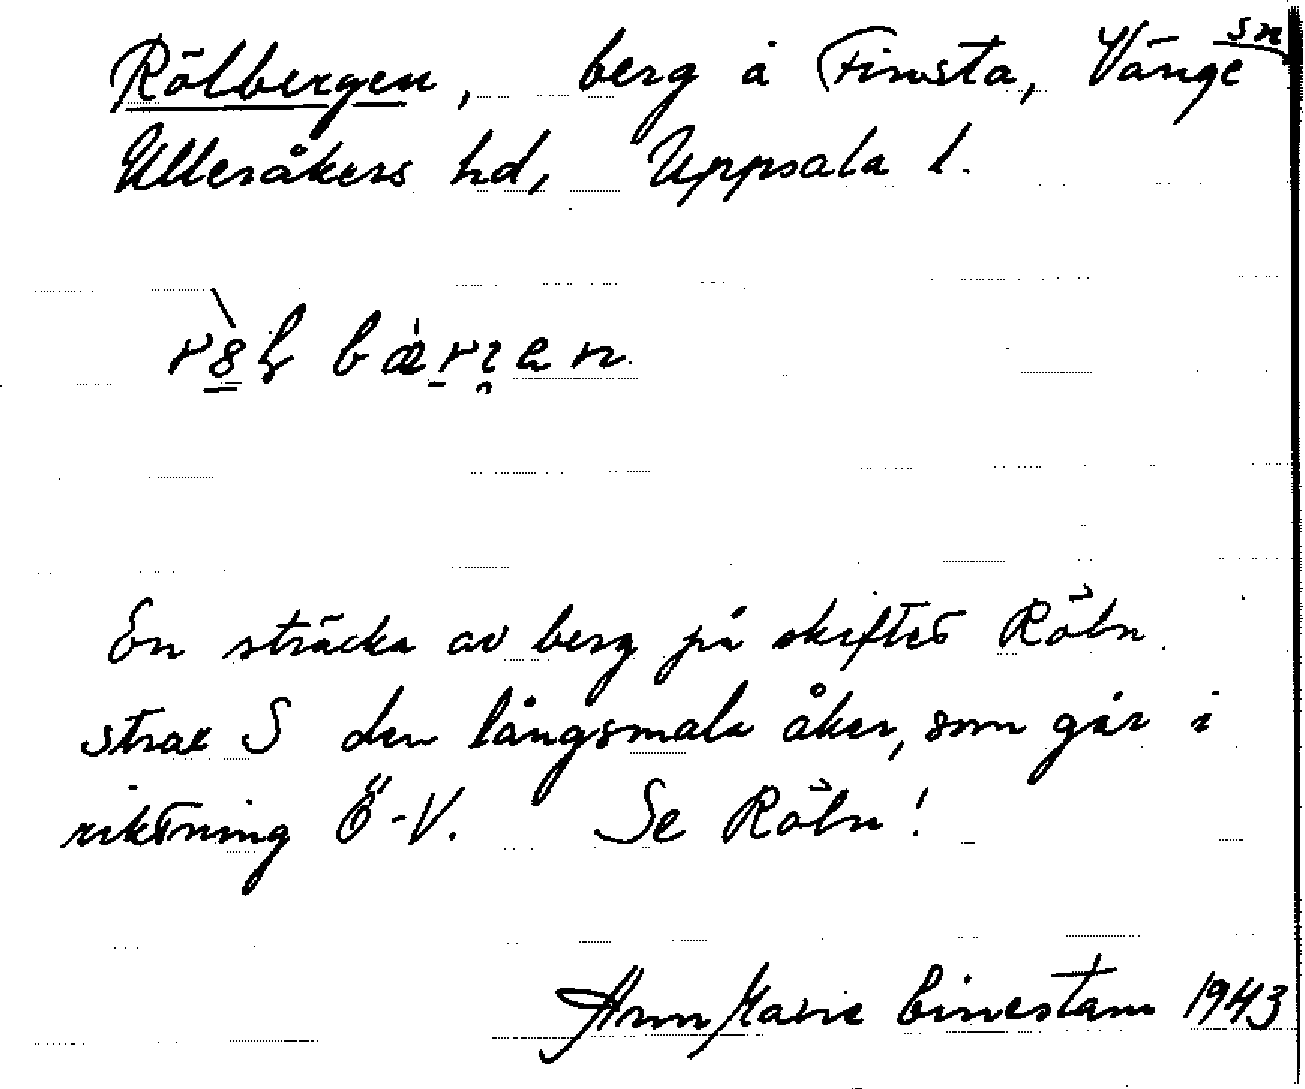 Rölbergen, berg å Finsta, Vänge sn
Ulleråkers hd, Uppsala l.
En sträcka av berg på skiftet Röln
strax S den långsmala åker, som går i
riktning Ö-V. Se Röln!
Ann Marie 1943